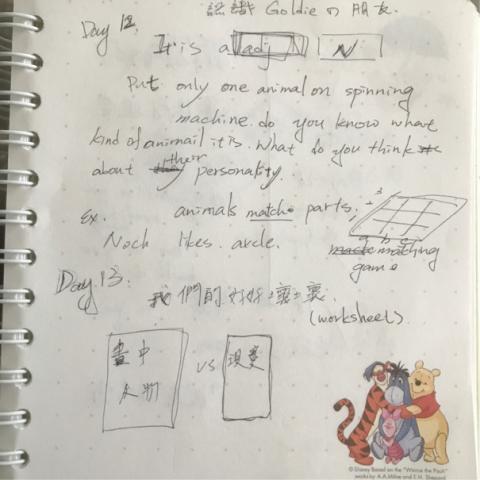 認識 Goldie の 朋友.
Day 12. It is a adj N N
Put only one animal on spinning
machine. do you know what
kind of animail it is. What do you think
about their personality.
ex. animals match parts.
1 2 3
a b c
matching
game
Noch likes. arcle.
Day 13. 我們的好好壞壞
(worksheet).
畫中
人物
VS
現實
© Disney Based on the "Winnie the Pooh"
works by A.A. Milne and E.H. Shepard